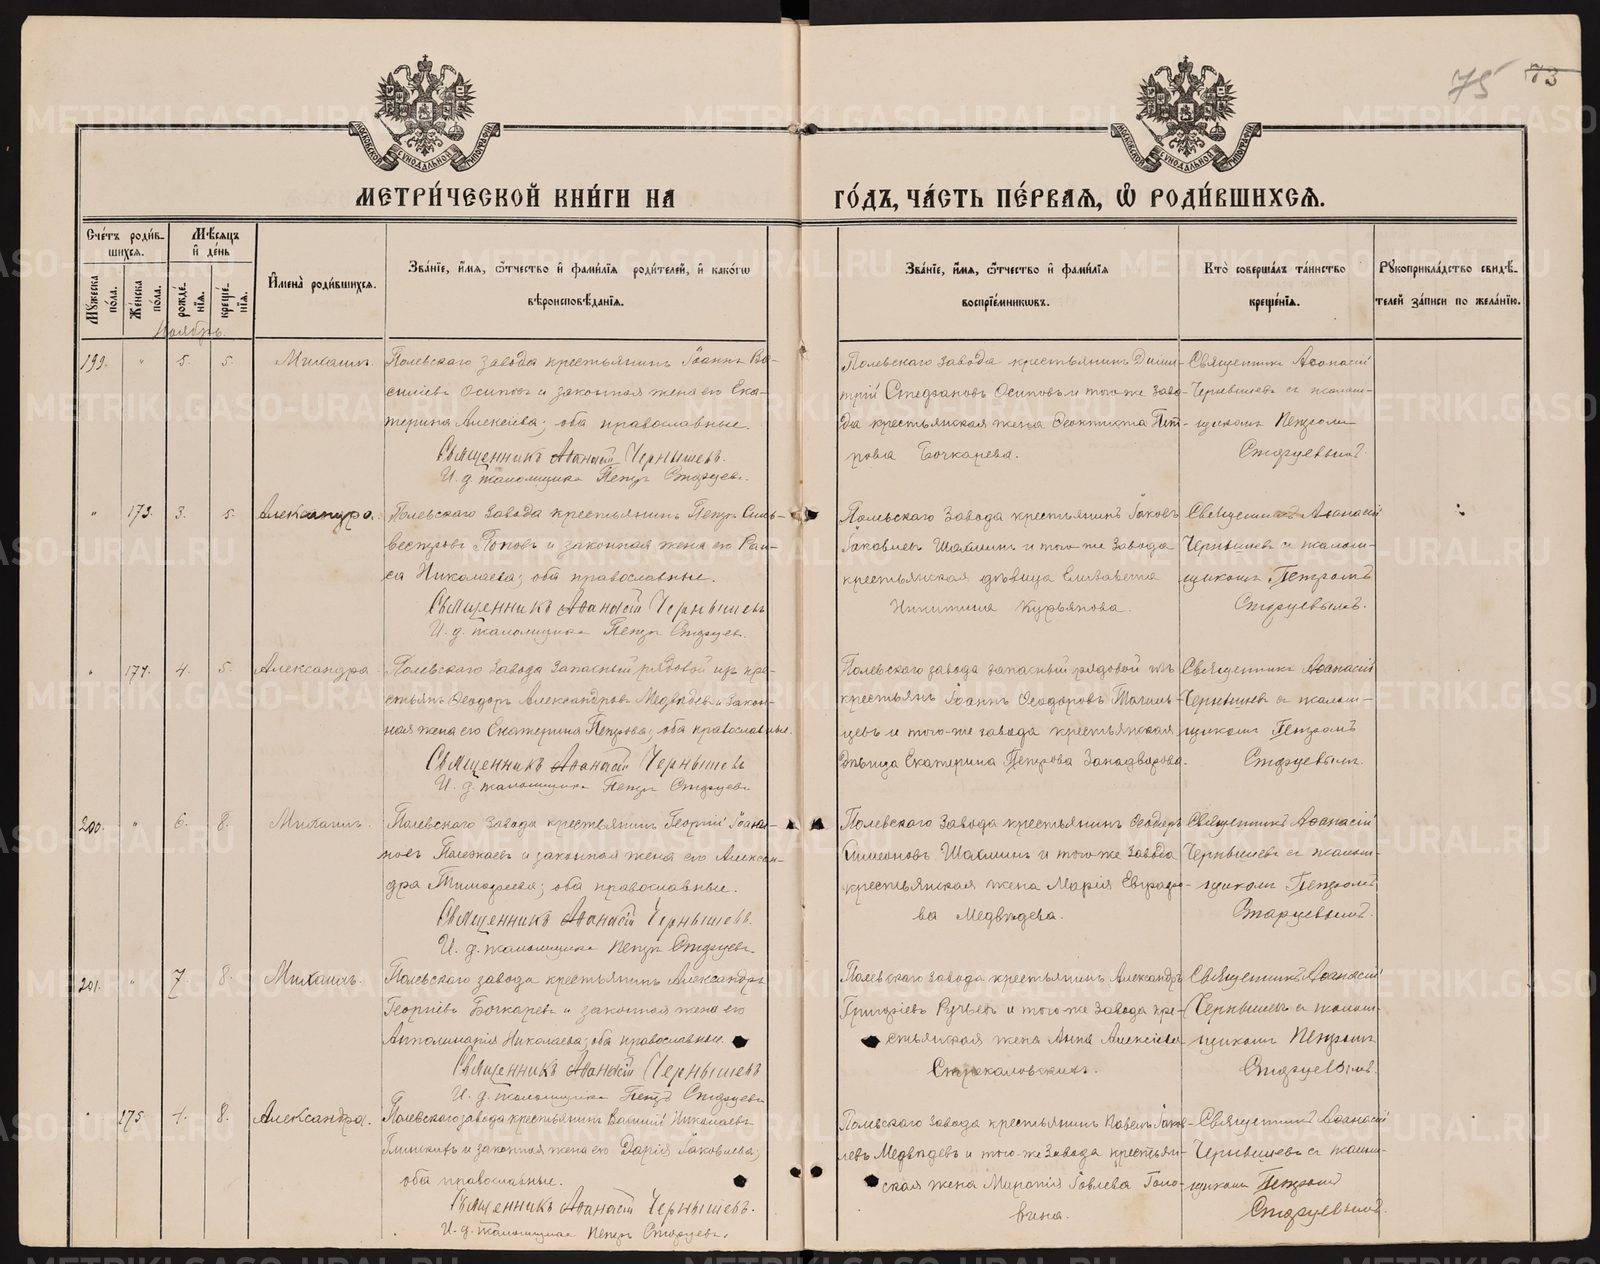 75 73
МЕТРИ́ЧЕСКОЙ КНИ́ГИ НА ГО́ДЪ, ЧА́СТЬ ПЕ́РВАЯ, Ѿ РОДИ́ВШИХСЯ.
Сче́тъ роди́вшихся.
Му́жеска по́ла.
Же́нска по́ла.
Мѣ́сяцъ и҆ де́нь
рожде́нїя.
креще́нїя.
И҆мена̀ роди́вшихся.
Зва́нїе, и҆́мя, ѻ҆́тчество и҆ фами́лїя роди́телей, и҆ како́гѡ
вѣроисповѣ́данїя.
Зва́нїе, и҆́мя, ѻ҆́тчество и҆ фами́лїя
воспрїе́мникѡвъ.
Кто̀ соверша́лъ та́инство
креще́нїя.
Рꙋкоприкла́дство свидѣ́-
телей за́писи по жела́нїю.
Ноябрь.
199. " 5. 5. Михаилъ.
Полевскаго завода крестьянинъ Іоаннъ Ва-
силіевъ Осиповъ и законная жена его Ека-
терина Алексіева; оба православные.
Священникъ Аѳанасій Чернышевъ.
И. д. псаломщика Петръ Старцевъ.
Полевскаго завода крестьянинъ Дими-
трій Стефановъ Осиповъ и того-же заво-
да крестьянская жена Ѳеоктиста Пет-
рова Бочкарева.
Священникъ Аѳанасій
Чернышевъ съ псалом-
щикомъ Петромъ
Старцевымъ.
" 173. 3. 5. Александра.
Полевскаго завода крестьянинъ Петръ Силь-
вестровъ Поповъ и законная жена его Раи-
са Николаева; оба православные.
Священникъ Аѳанасій Чернышевъ
И. д. псаломщика Петръ Старцев.
Полевскаго завода крестьянинъ Іаковъ
Іаковлевъ Шахминъ и того-же завода
крестьянская дѣвица Елисавета
Никитина Курьянова.
Священникъ Аѳанасій
Чернышевъ съ псалом-
щикомъ Петромъ
Старцевымъ.
" 174. 4. 5. Александра
Полевскаго завода запасный рядовой изъ кре-
стьянъ Ѳеодоръ Александровъ Медвѣдевъ и закон-
ная жена его Екатерина Петрова; оба православные.
Священникъ Аѳанасій Чернышевъ
И. д. псаломщика Петръ Старцевъ
Полевскаго завода запасный рядовой изъ
крестьянъ Іоаннъ Ѳеодоровъ Тагиль-
цевъ и того-же завода крестьянская
дѣвица Екатерина Петрова Западворова.
Священникъ Аѳанасій
Чернышевъ съ псалом-
щикомъ Петромъ
Старцевымъ.
200. " 6. 8. Михаилъ.
Полевскаго завода крестьянинъ Георгій Іоан-
новъ Полежаевъ и законная жена его Алексан-
дра Тимофеева; оба православные.
Священникъ Аѳанасій Чернышевъ.
И. д. псаломщика Петръ Старцевъ
Полевскаго завода крестьянинъ Ѳеодоръ
Симеоновъ Шахминъ и того-же завода
крестьянская жена Марія Евграфо-
ва Медвѣдева.
Священникъ Аѳанасій
Чернышевъ съ псалом-
щикомъ Петромъ
Старцевымъ.
201. " 7. 8. Михаилъ.
Полевскаго завода крестьянинъ Александръ
Георгіевъ Бочкаревъ и законная жена его
Апполинарія Николаева; оба православные.
Священникъ Аѳанасій Чернышевъ
И. д. псаломщика Петръ Старцевъ
Полевскаго завода крестьянинъ Александръ
Григоріевъ Ручьевъ и того-же завода кре-
стьянская жена Анна Алексіева
Священникъ Аѳанасій
Чернышевъ съ псалом-
щикомъ Петромъ
Старцевымъ.
" 175 1. 8. Александра.
Полевскаго завода крестьянинъ Василій Николаевъ
и законная жена его Дарія Іаковлева;
оба православные.
Священникъ Аѳанасій Чернышевъ.
И. д. псаломщика Петръ Старцевъ.
Полевскаго завода крестьянинъ Павелъ Іаков-
левъ Медвѣдевъ и того-же завода крестьян-
ская жена Миропія Іовлева Голо-
вина.
Священникъ Аѳанасій
Чернышевъ съ псалом-
щикомъ Петромъ
Старцевымъ.
METRIKI.GASO-URAL.RU